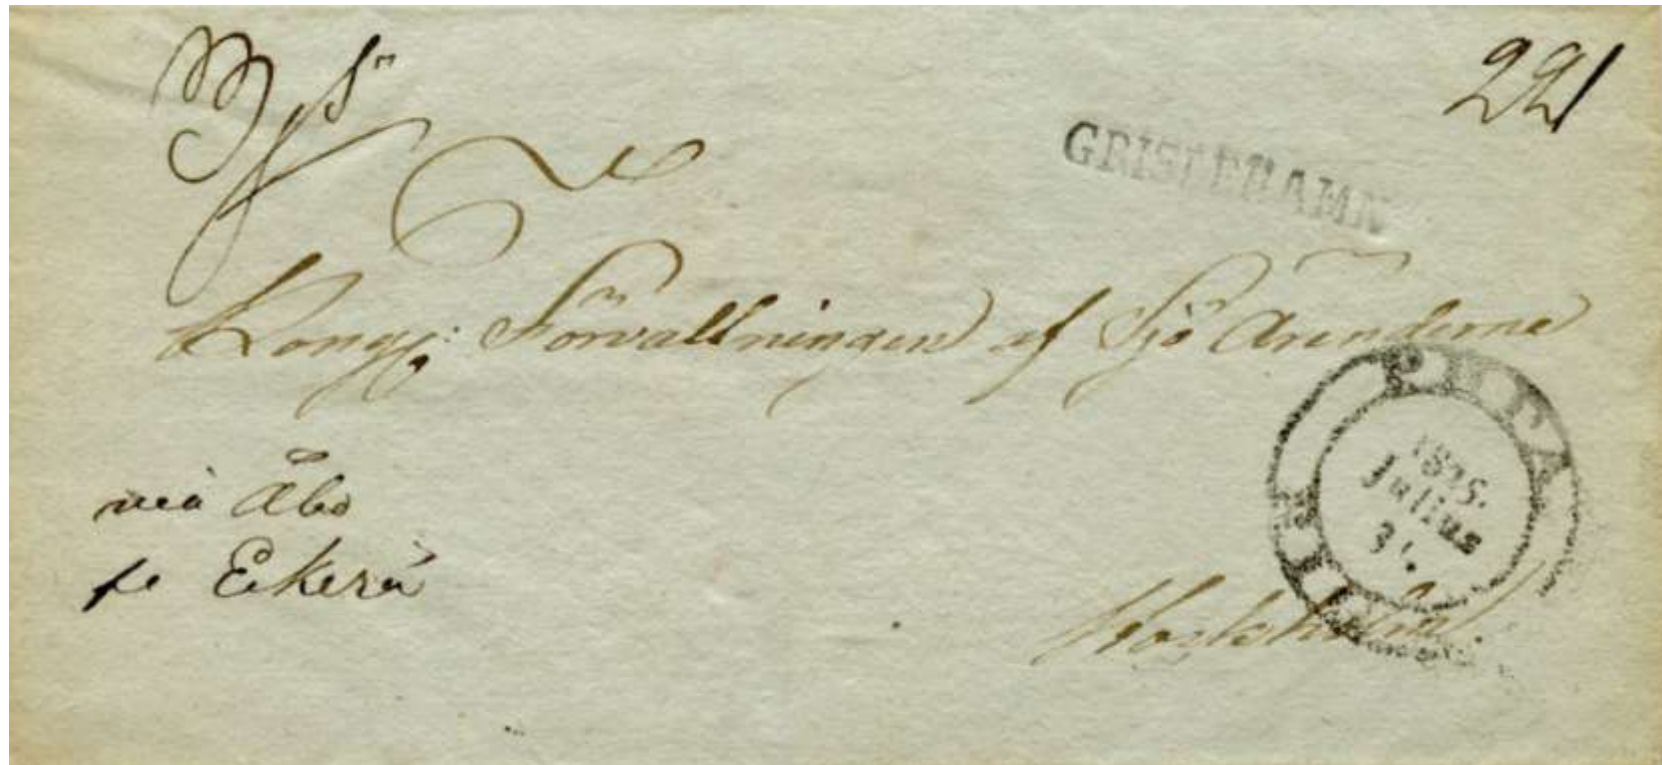 221
GRISLEHAMN
Kongl: Förvaltningen af Sjö Ärenderna
РИГА
1825.
Julius
31.
via Åbo
fr Eckerö
Stockholm.